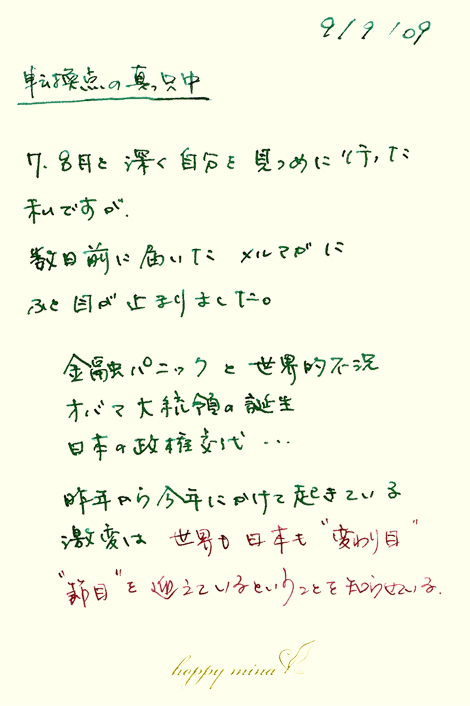 9/9/09
転換点の真っ只中
7、8月と深く自分を見つめに行った
私ですが、
数日前に届いたメルマガに
ふと目が止まりました。
金融パニックと世界的不況
オバマ大統領の誕生
日本の政権交代…
昨年から今年にかけて起きている
激変は世界も日本も“変わり目”
“節目”を迎えているということを知らせている.
happy mina